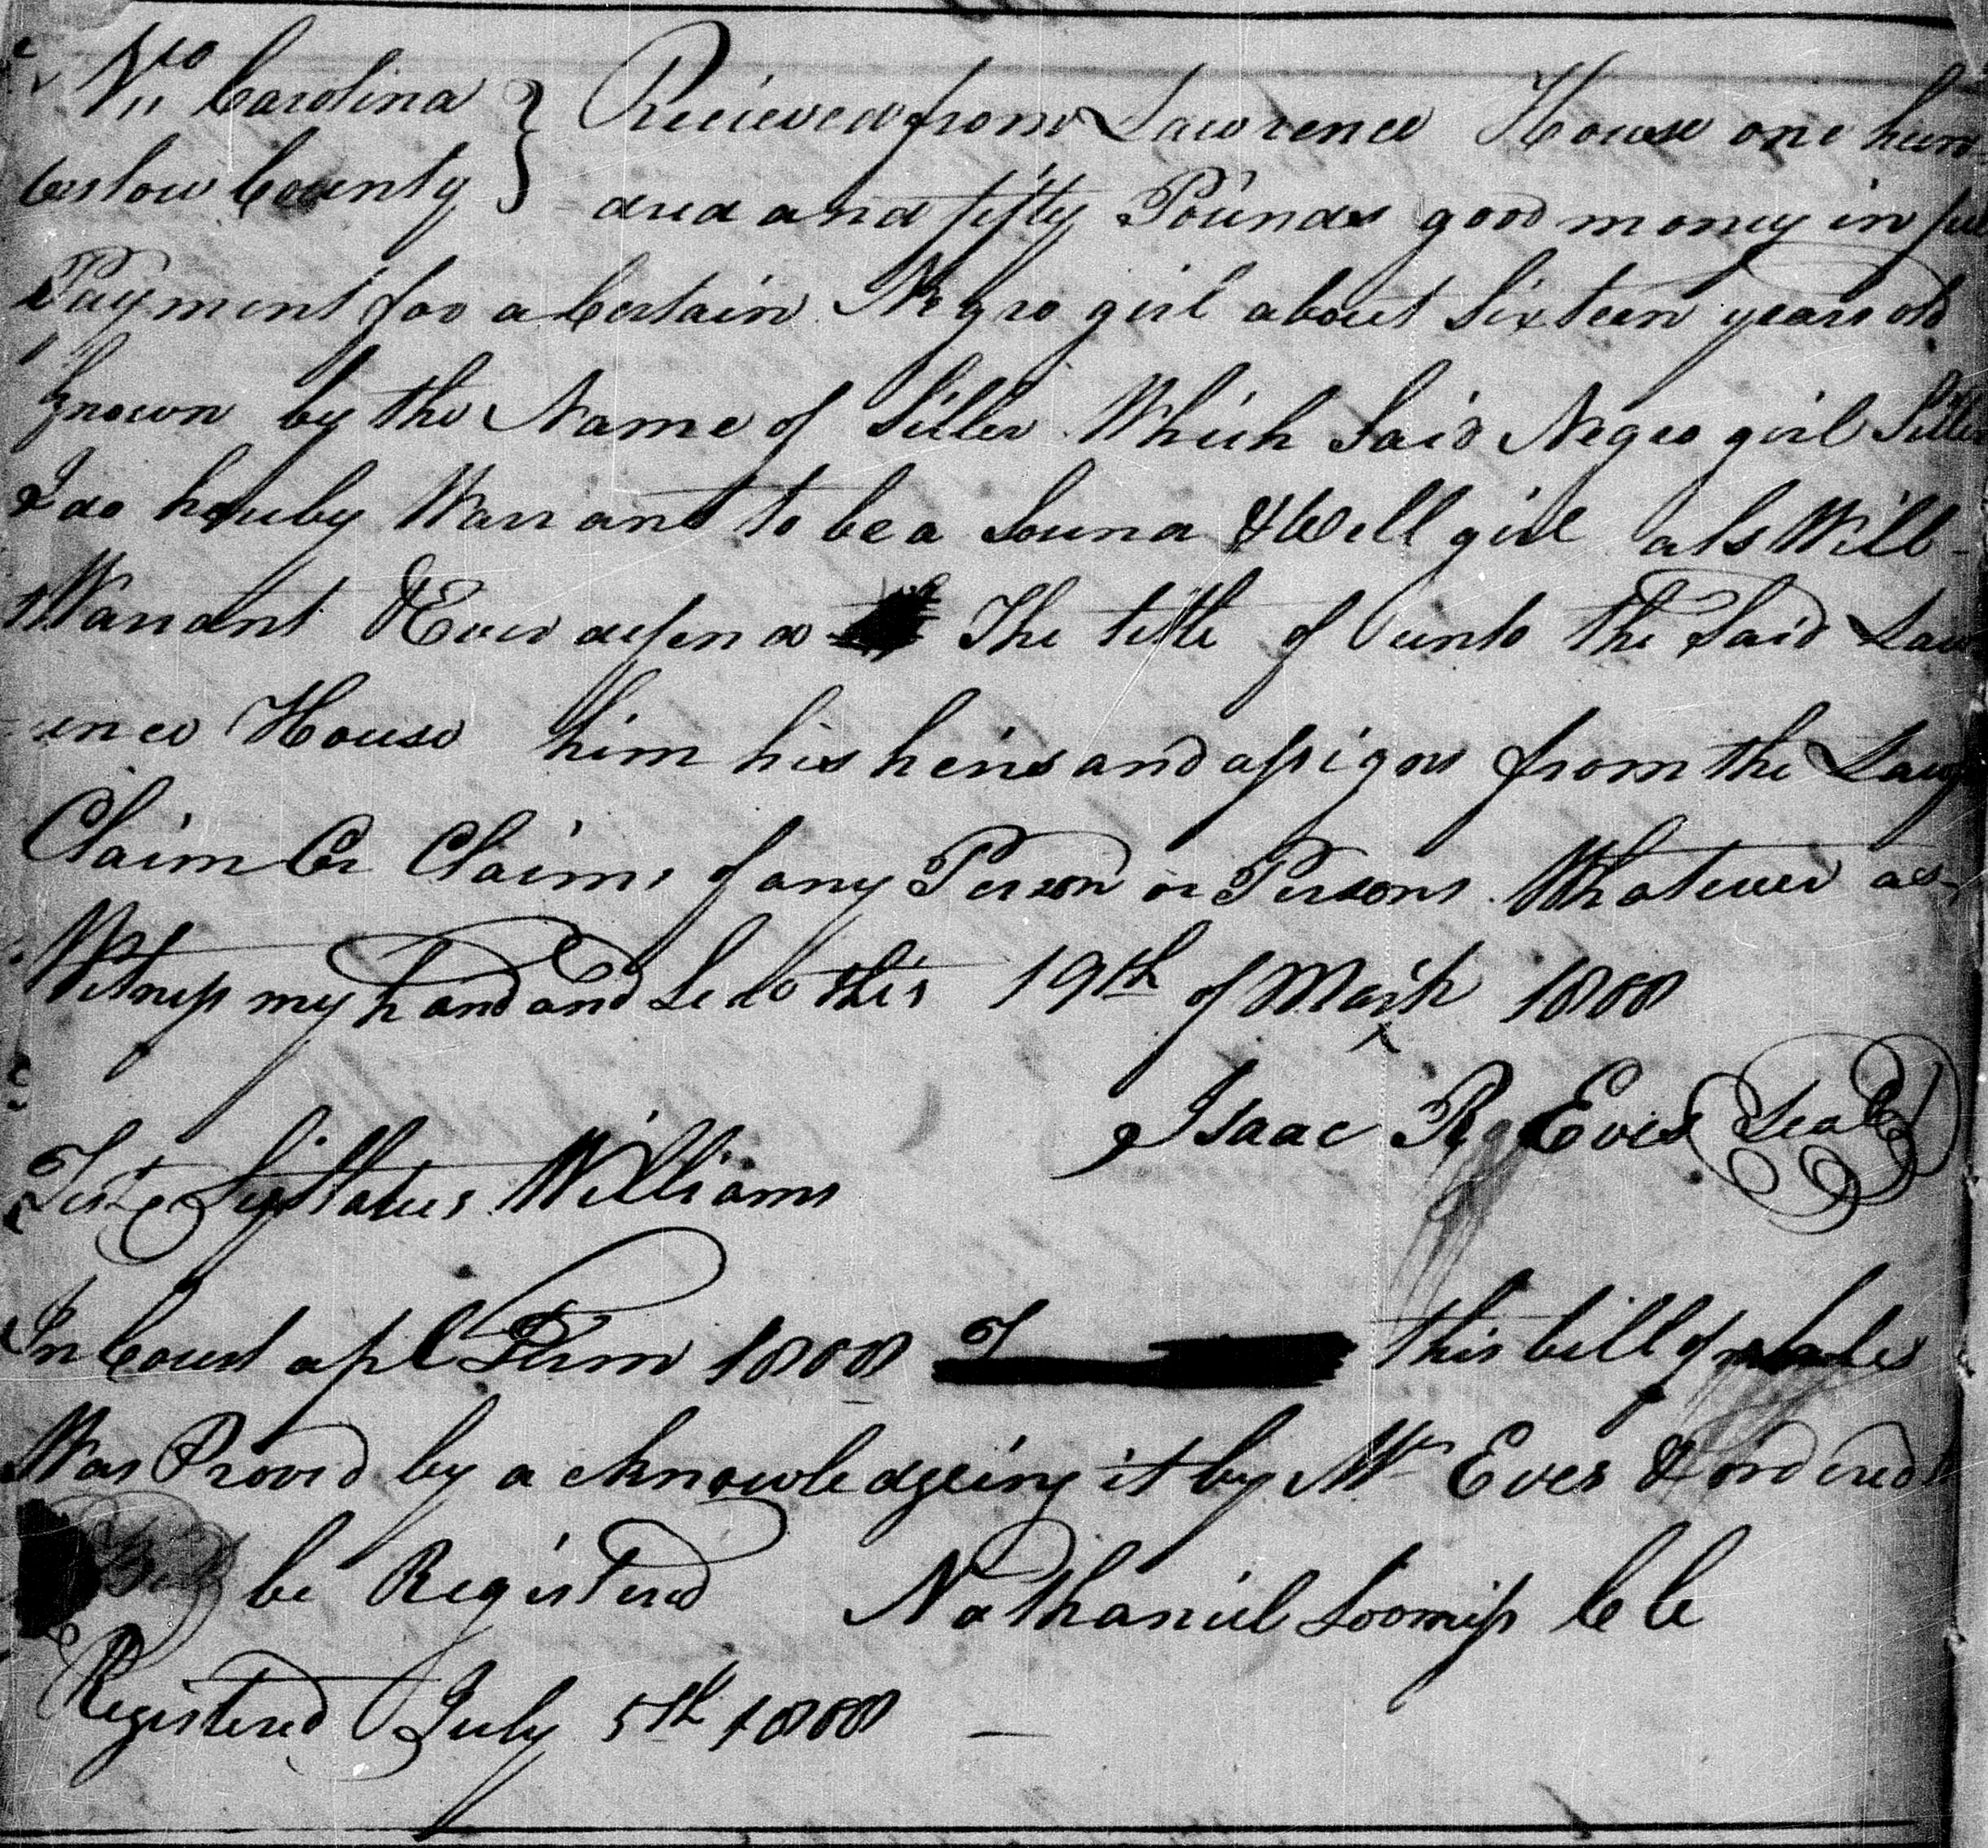 No Carolina } Recieved from Lawrence House one hun
County } dred and fifty Pounds good money in
Payment for a Certain Negro girl about Sixteen years old
Known by the Name of Siller Which Said Negro girl Siller
I do hereby Warrant to be a Sound & Well girl als Will
Warrant & Ever defend The title of unto the Said Law
rence House him his heirs and assigns from the Law
Claim Or Claims of any Person or Persons Whatever as
Witness my hand and this 19th of March 1808
Isaac R Eves Seal
Test Williams
In Court apl Term 1808 this bill of sale
Was Proved by acknowledgeing it by Mr Eves & ordered
be Registered Nathaniel Loomiss CC
Registered July 5th 1808 —